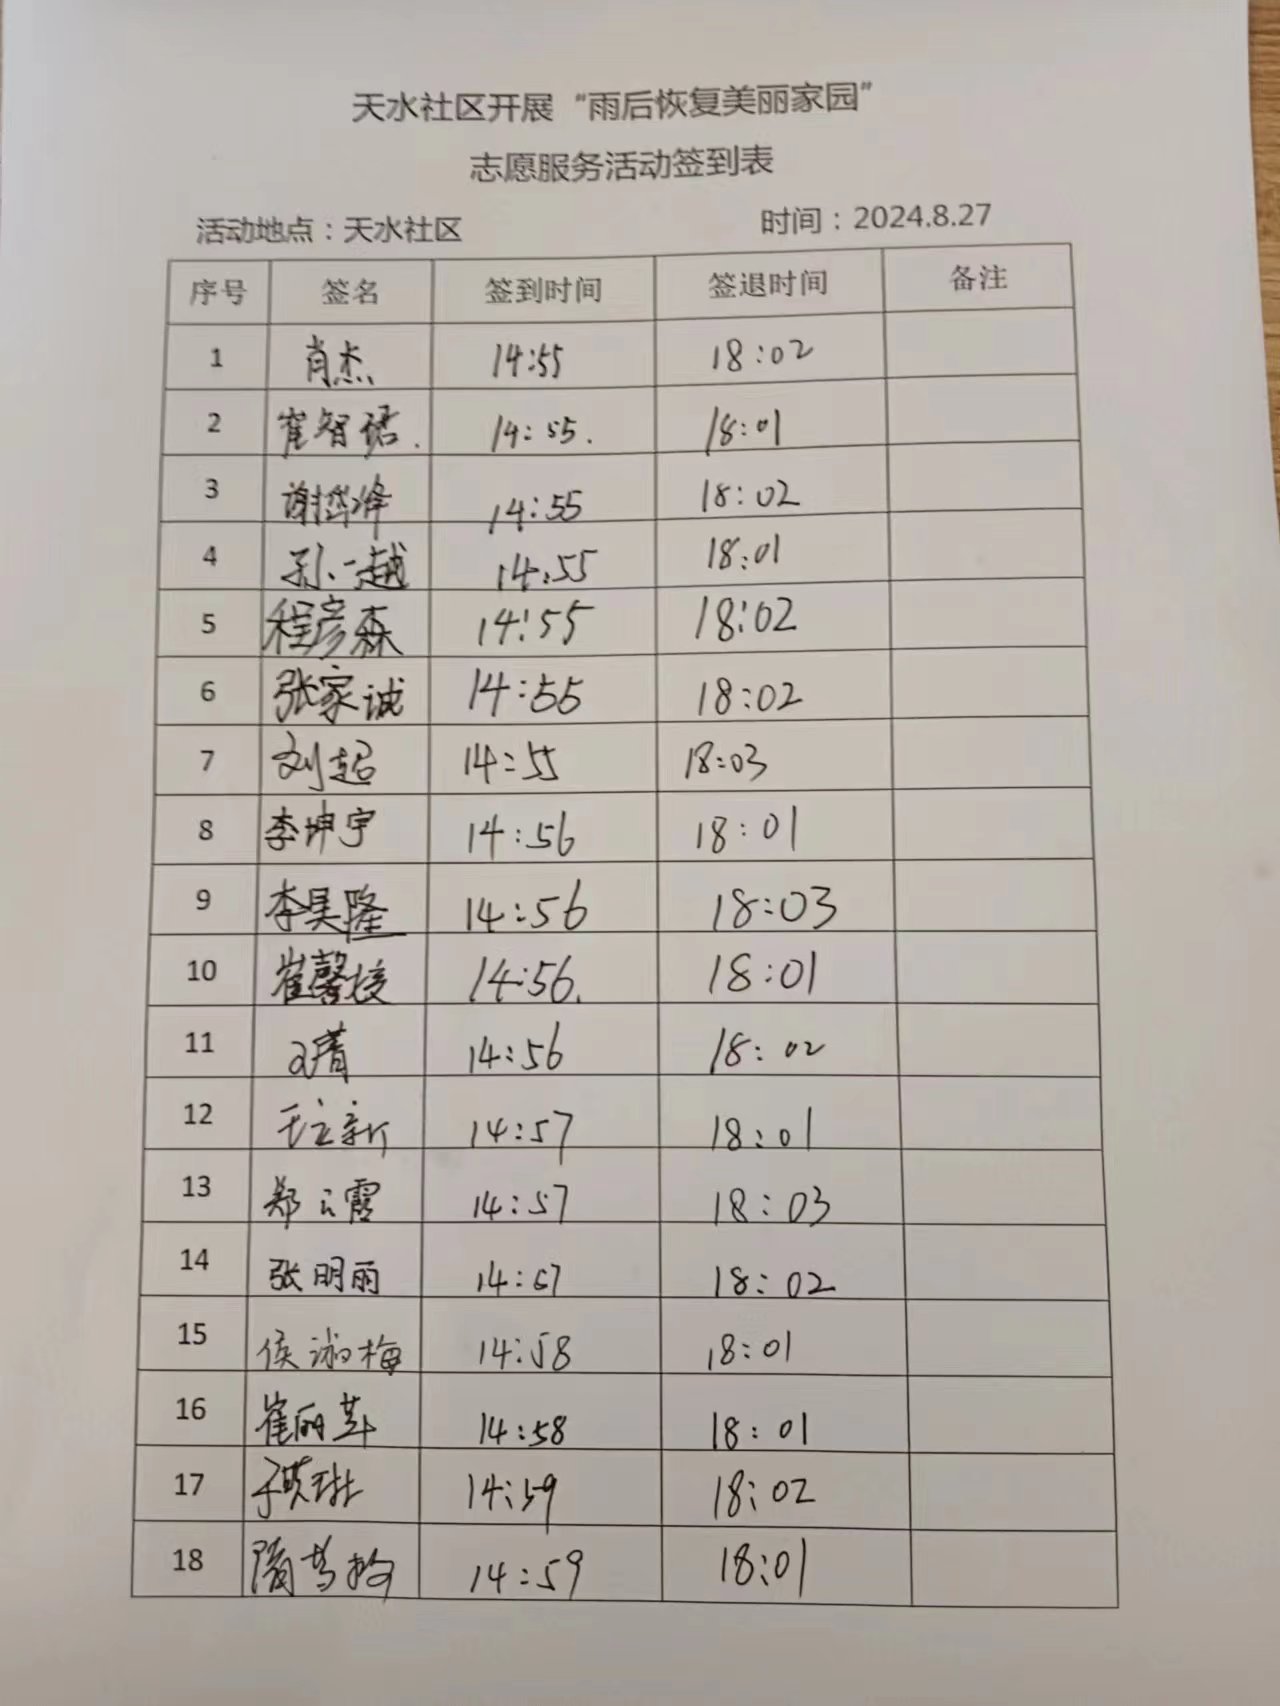 天水社区开展“雨后恢复美丽家园”
志愿服务活动签到表
活动地点：天水社区 时间：2024.8.27
序号 签名 签到时间 签退时间 备注
1 肖杰 14:55 18:02
2 崔智 14:55. 18:01
3 谢 14:55 18:02
4 孙一越 14:55 18:01
5 程彦森 14:55 18:02
6 张家诚 14:55 18:02
7 刘超 14:55 18:03
8 李坤宇 14:56 18:01
9 李昊隆 14:56 18:03
10 崔馨 14:56. 18:01
11 14:56 18:02
12 14:57 18:01
13 郑云霞 14:57 18:03
14 张明丽 14:57 18:02
15 侯淑梅 14:58 18:01
16 崔丽 14:58 18:01
17 14:59 18:02
18 隋 14:59 18:01